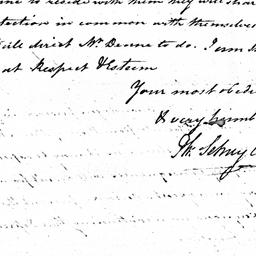 to reside with them they will shar
tection in common with themselve
will direct Mr Deane to do. I am
at Respect & Esteem
Your most obedi
& very humb